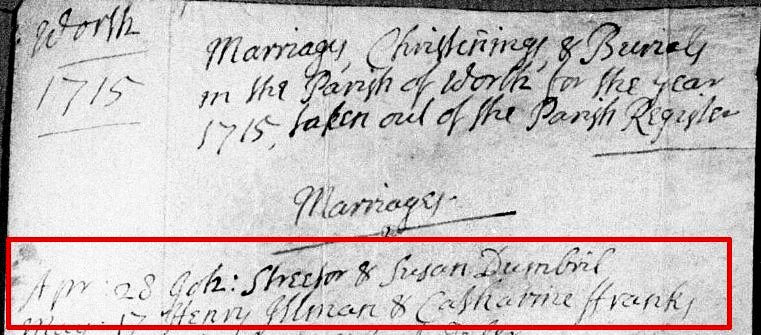 Worth
1715
Marriages, Christenings, & Burials
in the Parish of Worth, for the year
1715, taken out of the Parish Register
Marriages
Apr: 28 Joh: Streetor & Susan Dumbril
May: 17 Henry Illman & Catharine ffranks